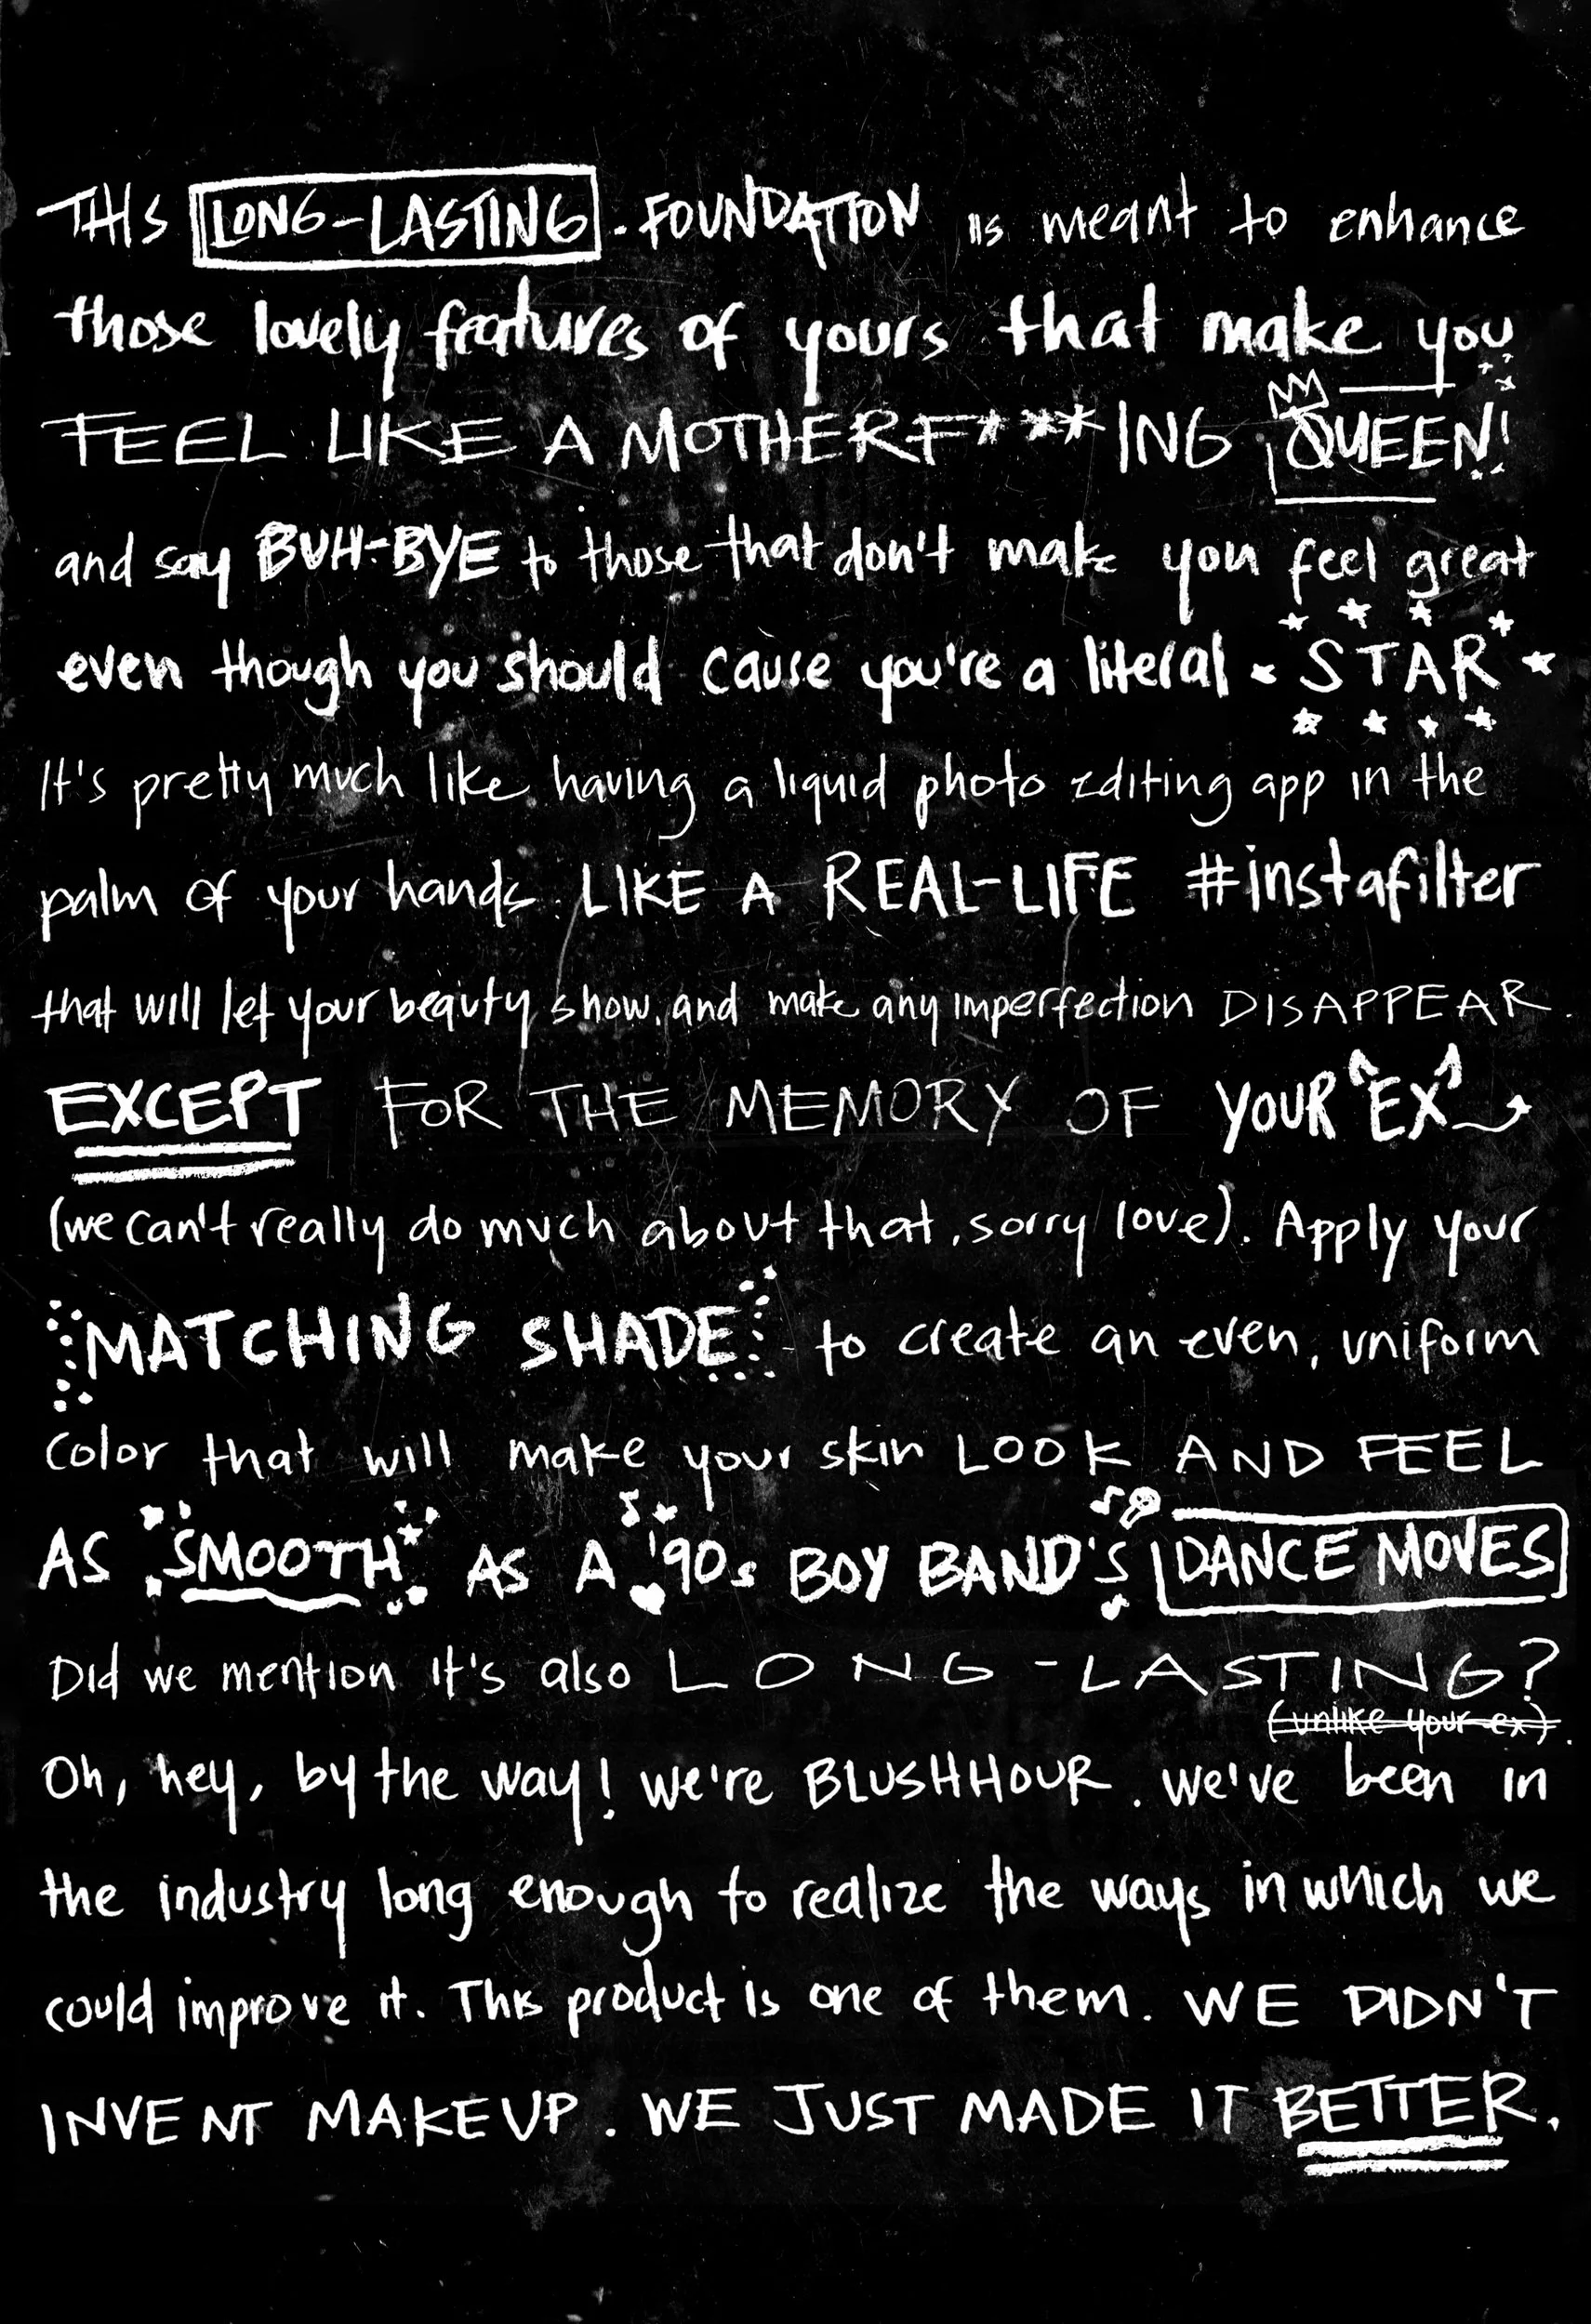 THIS LONG-LASTING. FOUNDATION is meant to enhance
those lovely features of yours that make you
FEEL LIKE A MOTHERF***ING QUEEN!
and say BUH-BYE to those that don't make you feel great
even though you should cause you're a literal STAR
It's pretty much like having a liquid photo editing app in the
palm of your hands. LIKE A REAL-LIFE #instafilter
that will let your beauty show, and make any imperfection DISAPPEAR.
EXCEPT FOR THE MEMORY OF YOUR EX
(we can't really do much about that, sorry love). Apply your
MATCHING SHADE to create an even, uniform
color that will make your skin LOOK AND FEEL
AS SMOOTH AS A '90s BOY BAND'S DANCE MOVES
Did we mention it's also LONG-LASTING?
(unlike your ex).
Oh, hey, by the way! we're BLUSHHOUR. we've been in
the industry long enough to realize the ways in which we
could improve it. This product is one of them. WE DIDN'T
INVENT MAKEUP. WE JUST MADE IT BETTER.